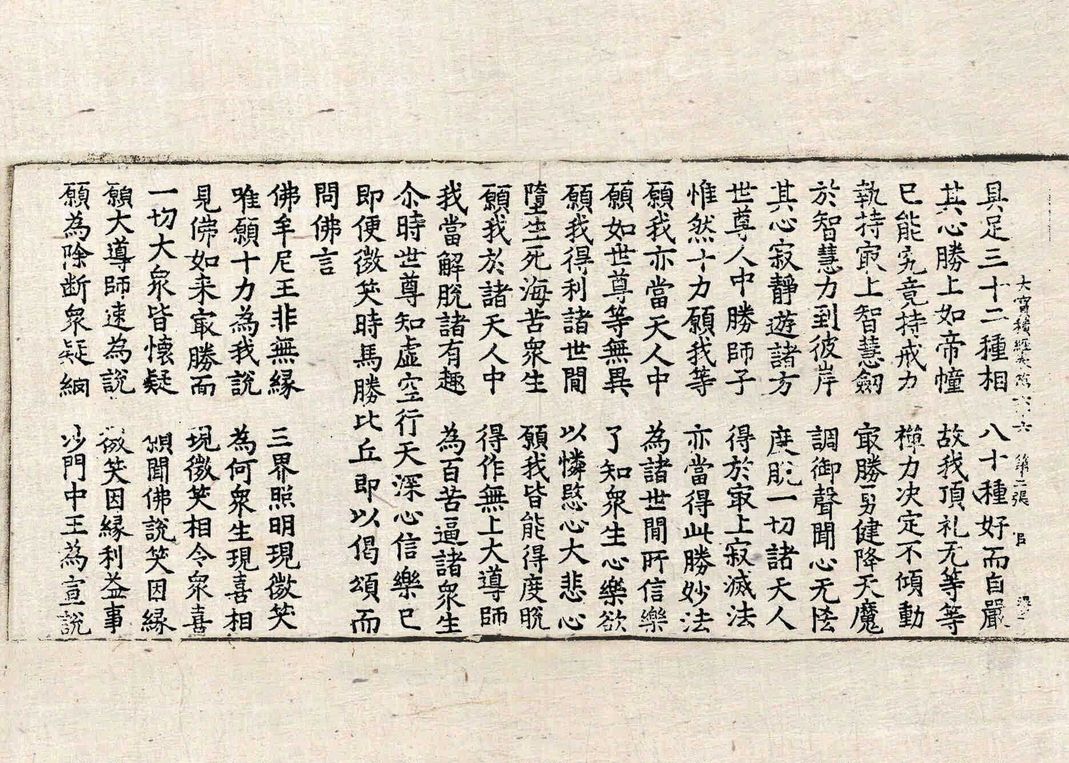 大寶積經卷第六十六 第二張
具足三十二種相 八十種好而自嚴
其心勝上如帝幢 故我頂礼无等等
已能究竟持戒力 禪力决定不傾動
執持㝡上智慧劒 㝡勝勇健降天魔
於智慧力到彼岸 調御聲聞心无恡
其心寂靜遊諸方 度脫一切諸天人
世尊人中勝師子 得於㝡上寂滅法
惟然十力願我等 亦當得此勝妙法
願我亦當天人中 為諸世間所信樂
願如世尊等無異 了知衆生心樂欲
願我得利諸世間 以憐愍心大悲心
墮生死海苦衆生 願我皆能得度脫
願我於諸天人中 得作無上大導師
我當解脫諸有趣 為百苦逼諸衆生
尒時世尊知虛空行天深心信樂已
即便微笑時馬勝比丘即以偈頌而
問佛言
佛牟尼王非無緣 三界照明現微笑
唯願十力為我說 為何衆生現喜相
見佛如来㝡勝面 現微笑相令衆喜
一切大衆皆懷疑 願聞佛說笑因緣
願大導師速為說 微笑因緣利益事
願為除断衆疑網 沙門中王為宣說